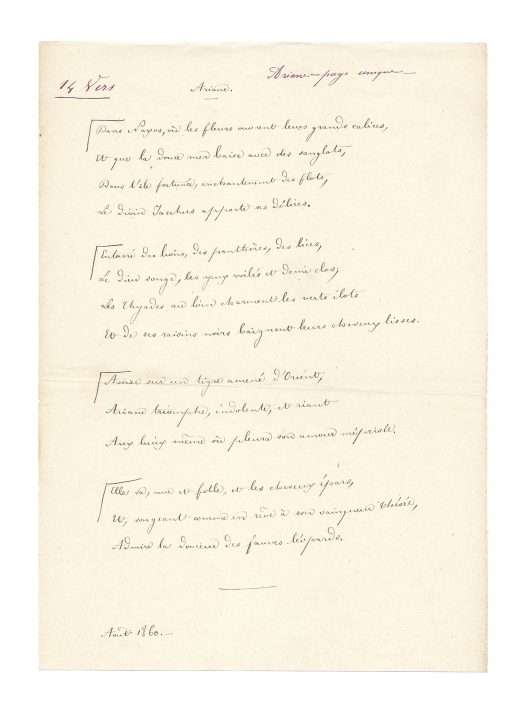 14 Vers
Ariane — page unique
Ariane.
Dans Naxos, où les fleurs ouvrent leurs grands calices,
Et que la douce mer baise avec des sanglots,
Dans l'île fortunée, enchantement des flots,
Le divin Iacchus apporte ses délices.
Entouré des lions, des panthères, des lices,
Le dieu songe, les yeux voilés et demi-clos;
Les Thyades au loin charment les verts îlots
Et de ses raisins noirs baignent leurs cheveux lisses.
Assise sur un tigre amené d'Orient,
Ariane triomphe, indolente, et riant
Aux lieux même où pleura son amour méprisée.
Elle va, nue et folle, et les cheveux épars,
Et, songeant comme en rêve à son vainqueur Thésée,
Admire la douceur des fauves léopards.
Août 1860.—